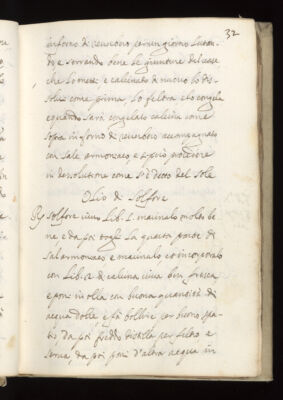 32
in forno di reuerbero per un giorno lutan
do e serrando bene le giunture del uase
che lo messe e calcinato di nuouo lo dis
solui come prima lo feltra e lo congela
e quando sarà congelato calcina come
sopra in forno di reuerbero accompagnato
con sale armoniaco e si può procedere
in desolutione come s'è detto del sole
Olio di solfore
Solfore uiuo Lib. 1. macinalo molto be
ne e da poi la quarta parte di
sal armoniaco e macinalo e incorporalo
con Lib. 2 di calcina uiua ben fresca
e poni in olla con buona quantità di
acqua dolce e fa bollire per buono spa
tio da poi freddo distilla per filtro e
serua, da poi poni d'altra acqua in